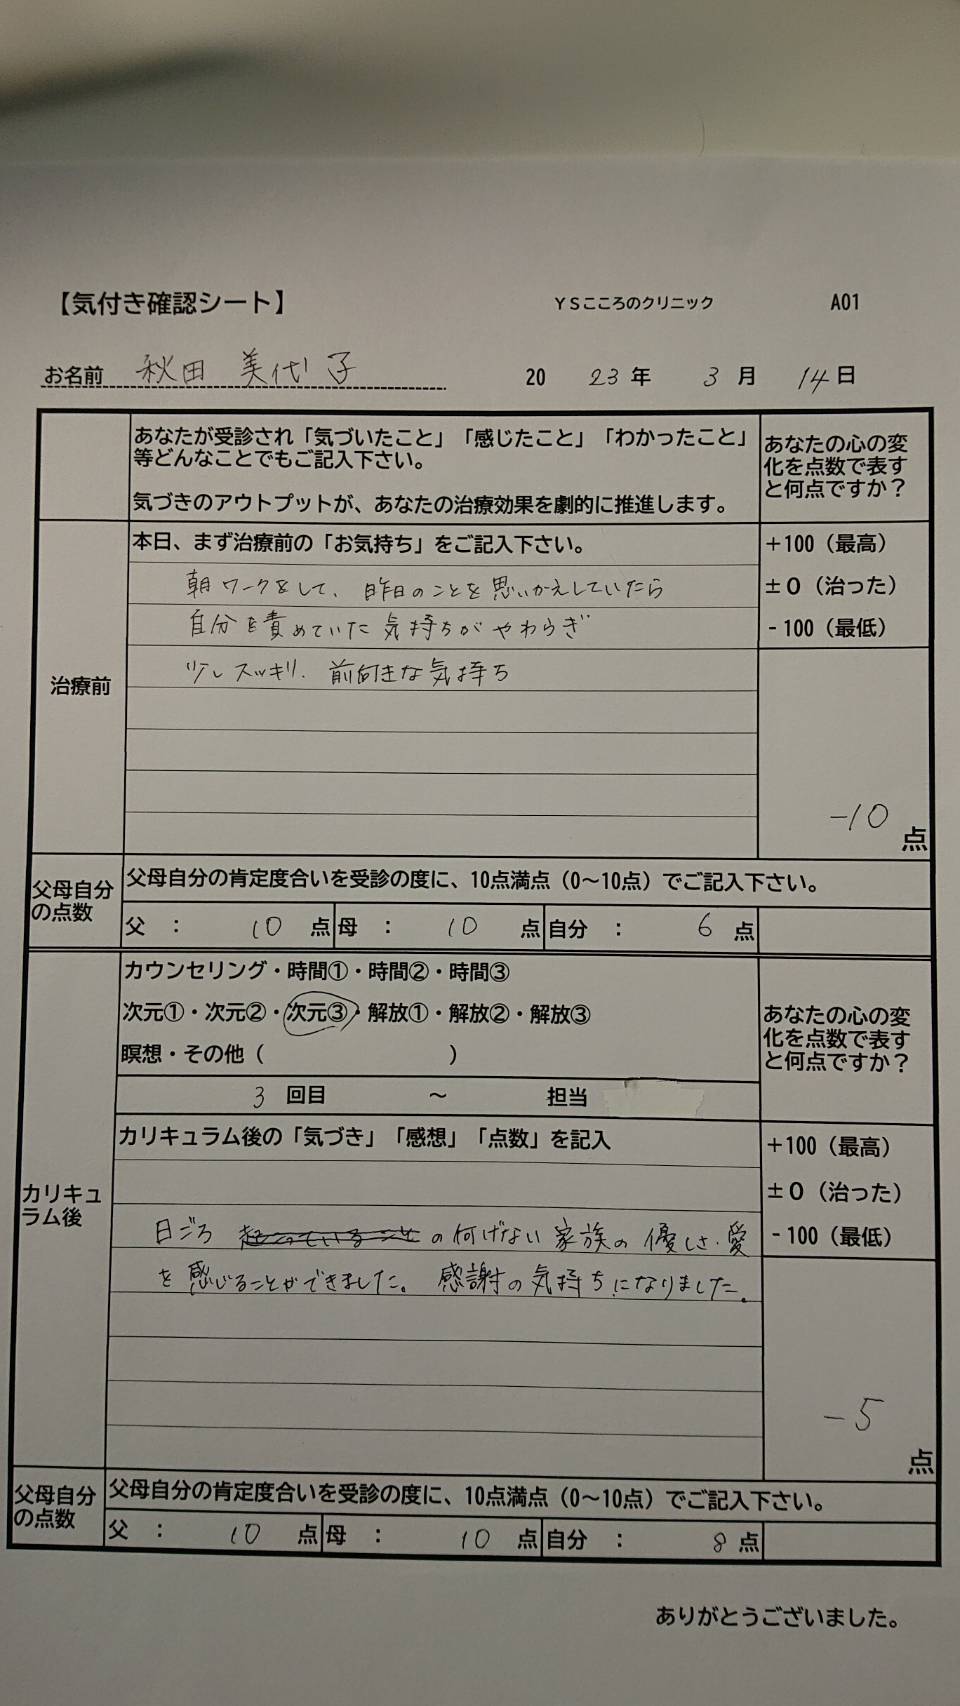 【気付き確認シート】 YSこころのクリニック A01
お名前 秋田 美代子 2023年 3月 14日
あなたが受診され「気づいたこと」「感じたこと」「わかったこと」
等どんなことでもご記入下さい。
気づきのアウトプットが、あなたの治療効果を劇的に推進します。
あなたの心の変
化を点数で表す
と何点ですか？
治療前
本日、まず治療前の「お気持ち」をご記入下さい。
朝ワークをして、昨日のことを思いかえしていたら
自分を責めていた気持ちがやわらぎ
少しスッキリ．前向きな気持ち
+100（最高）
±0（治った）
-100（最低）
-10点
父母自分
の点数
父母自分の肯定度合いを受診の度に、10点満点（0～10点）でご記入下さい。
父 ： 10 点 母 ： 10 点 自分 ： 6 点
カリキュ
ラム後
カウンセリング・時間①・時間②・時間③
次元①・次元②・次元③・解放①・解放②・解放③
瞑想・その他（ ）
3 回目 ～ 担当
あなたの心の変
化を点数で表す
と何点ですか？
カリキュラム後の「気づき」「感想」「点数」を記入
日ごろ の何げない家族の優しさ・愛
を感じることができました。感謝の気持ちになりました。
+100（最高）
±0（治った）
-100（最低）
-5点
父母自分
の点数
父母自分の肯定度合いを受診の度に、10点満点（0～10点）でご記入下さい。
父 ： 10 点 母 ： 10 点 自分 ： 8 点
ありがとうございました。